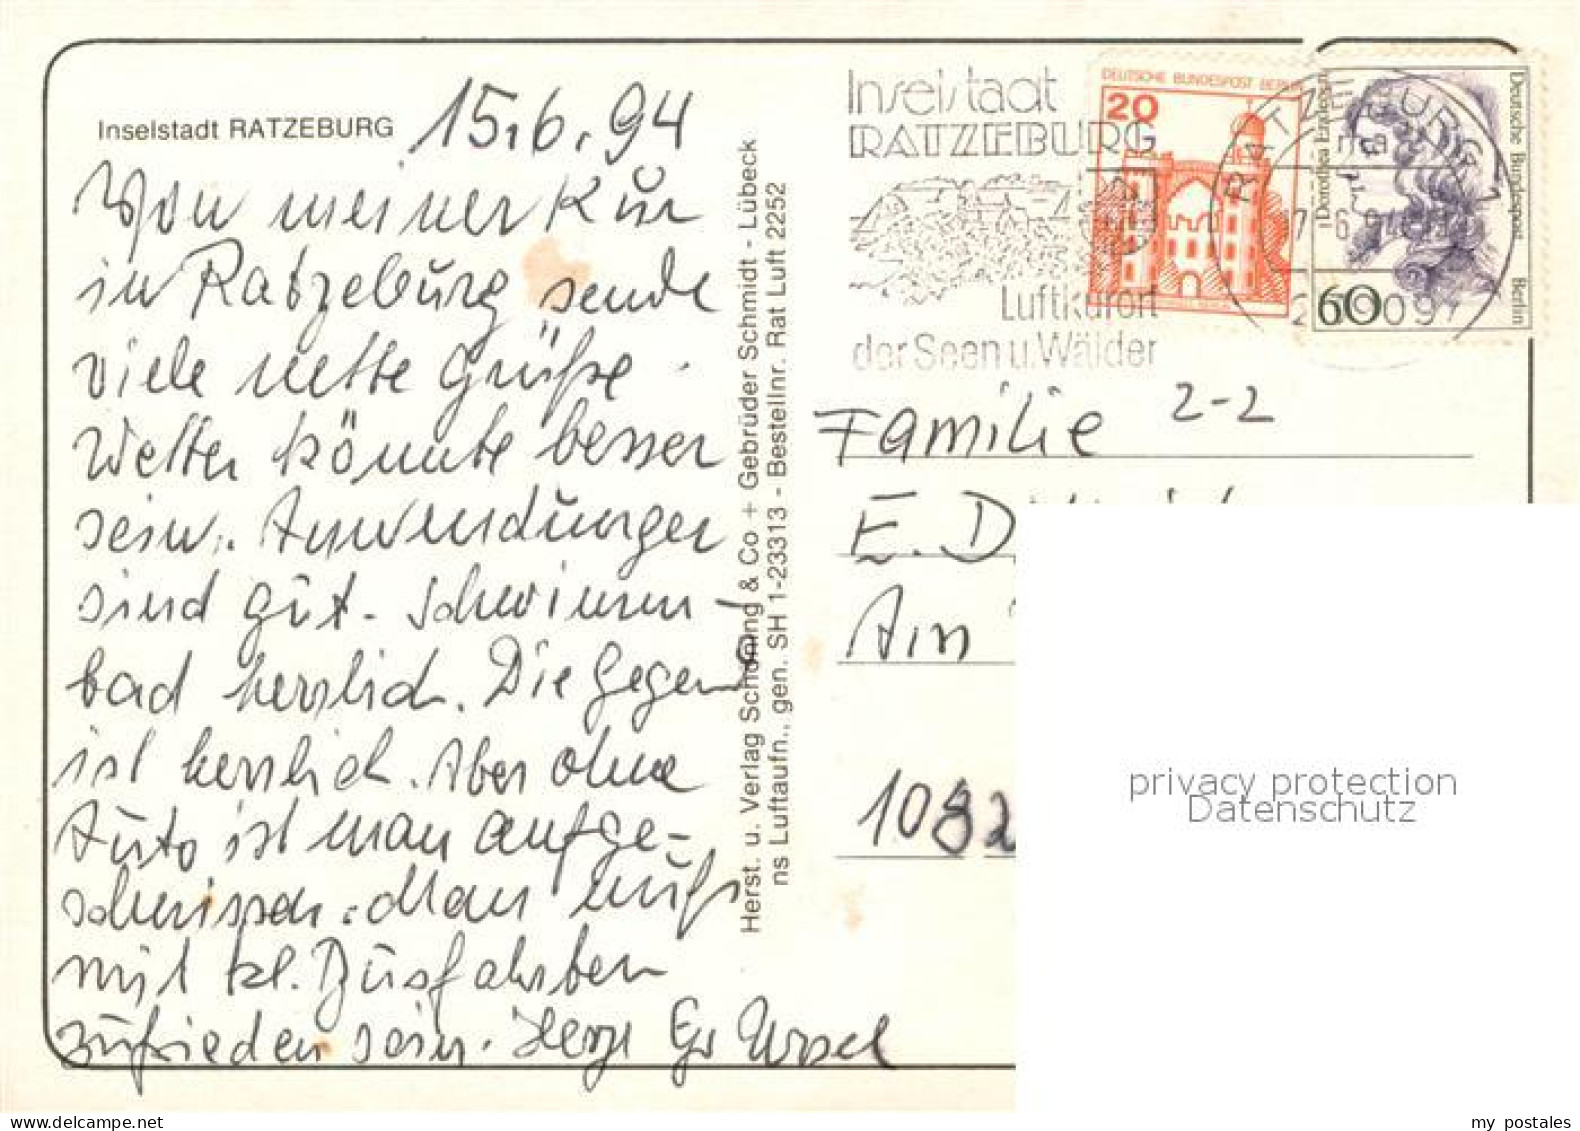 Inselstadt RATZEBURG
15.6.94
Von meiner Kur
in Ratzeburg sende
viele nette Grüße.
Wetter könnte besser
sein. Anwendungen
sind gut. Schwimm-
bad herrlich. Die Gegend
ist herrlich. Aber ohne
Auto ist man aufge-
schmissen. Man muß
mit kl. Busfahrten
zufrieden sein. Herzl Ursel
Herst. u. Verlag Schöning & Co + Gebrüder Schmidt - Lübeck
ns Luftaufn., gen. SH 1-23313 - Bestellnr. Rat Luft 2252
Inselstadt
RATZEBURG
Luftkurort
der Seen u. Wälder
DEUTSCHE BUNDESPOST BERLIN
20
RATZEBURG 1
Dorothea Erxleben
Deutsche Bundespost Berlin
60
Familie 2-2
E. D
Am
1082
privacy protection
Datenschutz
my postales